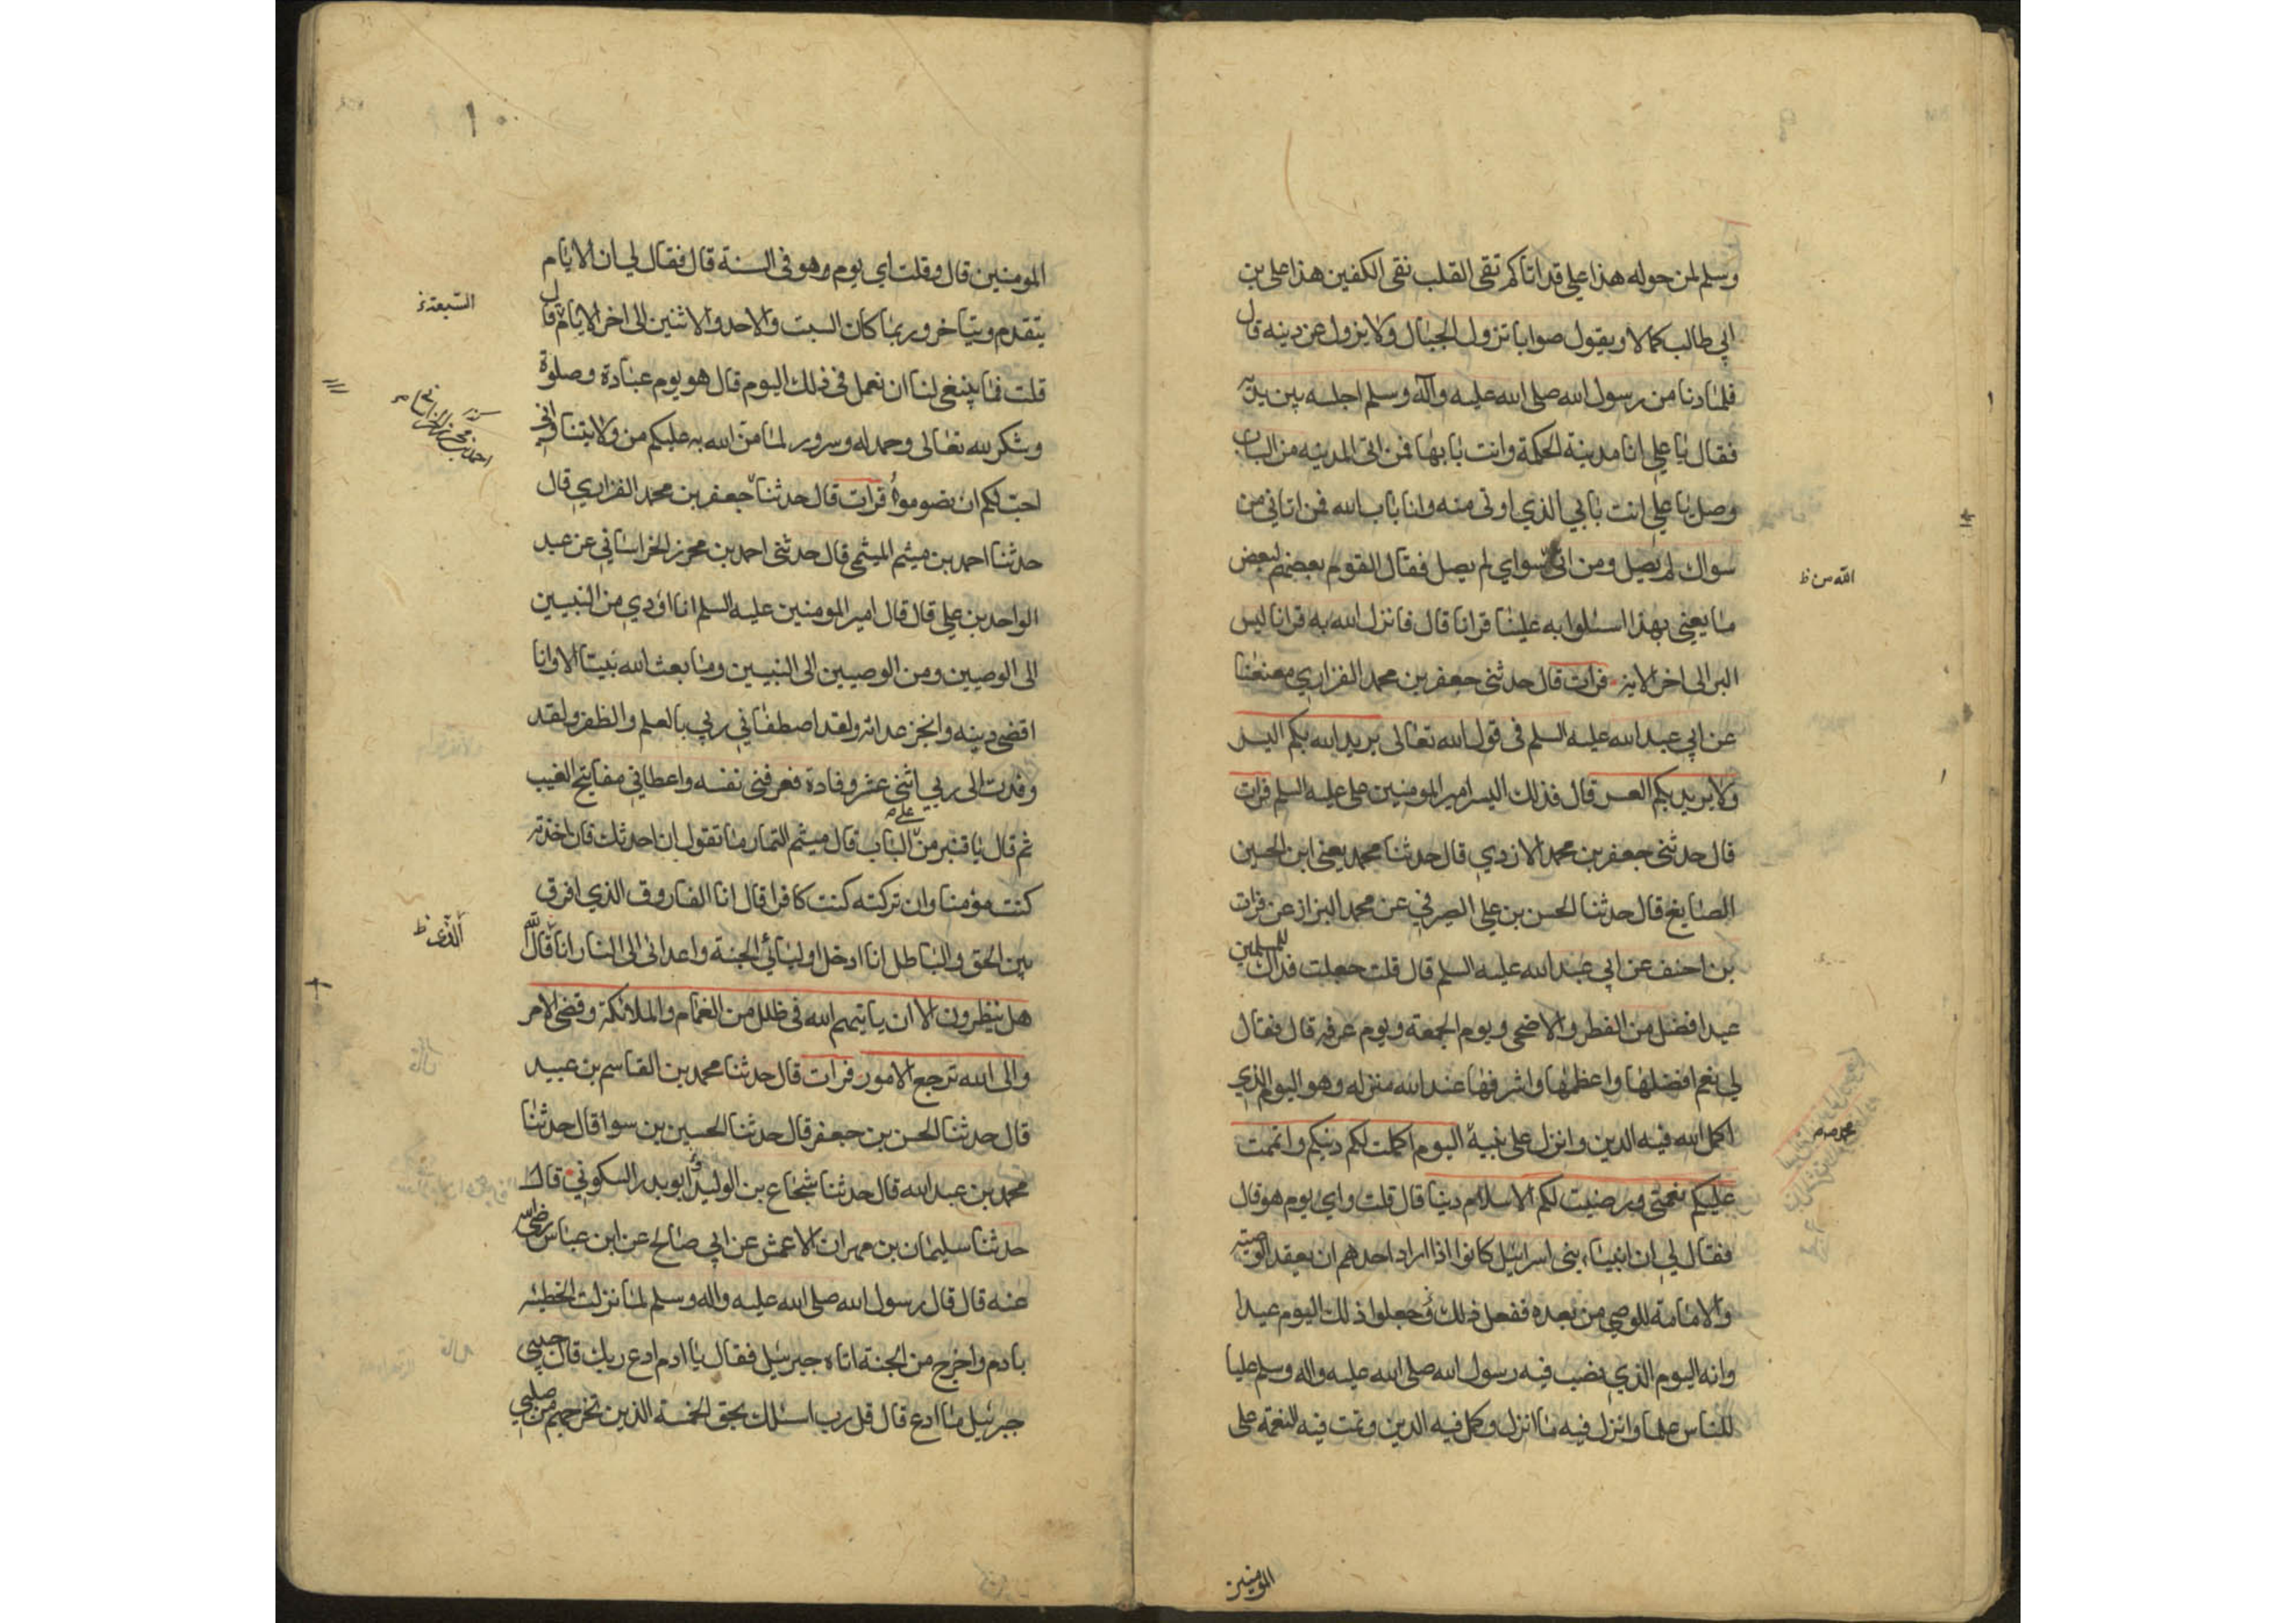 وسلم لمن حوله هذا علي قد اتاكم تقى القلب نقى الكفين هذا علي بن
ابي طالب كمالا ويقول صوابا تزول الجبال ولا يزول عن دينه قال
فلما دنا من رسول الله صلى الله عليه وآله وسلم اجلسه بين يديه
فقال يا علي انا مدينة الحكمة وانت بابها فمن اتى المدينه من الباب
وصل يا علي انت بابي الذي اوتى منه وانا باب الله فمن اتاني من
سواك لم يصل ومن اتى سواي لم يصل فقال القوم بعضهم لبعض
ما يعنى بهذا اسئلوا به علينا قرانا قال فانزل الله به قرانا ليس
البر الى اخر الايه فرات قال حدثنى جعفر بن محمد الفزاري معنعنا
عن ابي عبد الله عليه السلم فى قول الله تعالى يريد الله بكم اليسر
ولا يريد بكم العسر قال فذلك اليسر امير المومنين علي عليه السلم فرات
قال حدثنى جعفر بن محمد الازدي قال حدثنا محمد يعنى ابن الحسين
الصايغ قال حدثنا الحسن بن علي الصيرفي عن محمد البزاز عن فرات
بن احنف عن ابي عبد الله عليه السلم قال قلت جعلت فداك للمسلمين
عيد افضل من الفطر والاضحى ويوم الجمعة ويوم عرفه قال فقال
لي نعم افضلها واعظمها واشرفها عند الله منزله وهو اليوم الذي
اكمل الله فيه الدين وانزل على نبيه اليوم اكملت لكم دينكم واتممت
عليكم نعمتى ورضيت لكم الاسلام دينا قال قلت واي يوم هو قال
فقال لي ان انبياء بنى اسرائيل كانوا اذا اراد احدهم ان يعقد الوصيه
والامامة للوصي من بعده ففعل ذلك جعلوا ذلك اليوم عيدا
وانه اليوم الذي نصب فيه رسول الله صلى الله عليه واله وسلم عليا
للناس علما وانزل فيه ما انزل وكمل فيه الدين وتمت فيه النعمة على
الله من ظ
محمد صم
المومنين
١٠
المومنين قال وقلت اي يوم وهو فى السنة قال فقال لي ان الايام
يتقدم ويتاخر وربما كان السبت والاحد والاثنين الى اخر الايام قال
قلت فما ينبغى لنا ان نعمل فى ذلك اليوم قال هو يوم عبادة وصلوة
وشكر لله تعالى وحمد له وسرور لما من الله به عليكم من ولايتنا وانى
احب لكم ان تصوموا فرات قال حدثنا جعفر بن محمد الفزاري قال
حدثنا احمد بن ميثم الميثمى قال حدثنى احمد بن محرز الخراساني عن عبد
الواحد بن علي قال قال امير المومنين عليه السلم انا اؤدي من النبيين
الى الوصيين ومن الوصيين الى النبيين وما بعث الله نبيا الا وانا
اقضى دينه وانجز عداته ولقد اصطفاني ربي بالعلم والظفر ولقد
وفدت الى ربي اثنى عشر وفادة فعرفنى نفسه واعطاني مفاتيح الغيب
ثم قال يا قنبر من على الباب قال ميثم التمار ما تقول ان احدثك فان اخذته
كنت مؤمنا وان تركته كنت كافرا قال انا الفاروق الذي افرق
بين الحق والباطل انا ادخل اوليائي الجنة واعدائى الى النار انا قال الله
هل ينظرون الا ان ياتيهم الله فى ظلل من الغمام والملائكة وقضى الامر
والى الله ترجع الامور فرات قال حدثنا محمد بن القاسم بن عبيد
قال حدثنا الحسن بن جعفر قال حدثنا الحسين بن سوا قال حدثنا
محمد بن عبد الله قال حدثنا شجاع بن الوليد ابو بدر السكوني قال
حدثنا سليمان بن مهران الاعمش عن ابي صالح عن ابن عباس رضى الله
عنه قال قال رسول الله صلى الله عليه واله وسلم لما نزلت الخطيئه
بادم واخرج من الجنة اتاه جبرئيل فقال يا ادم ادع ربك قال حبيبى
جبرئيل ما ادع قال قل رب اسئلك بحق الخمسة الذين تخرجهم من صلبي
السبعة
احمد بن محرز الخراسانى
الذى ظ